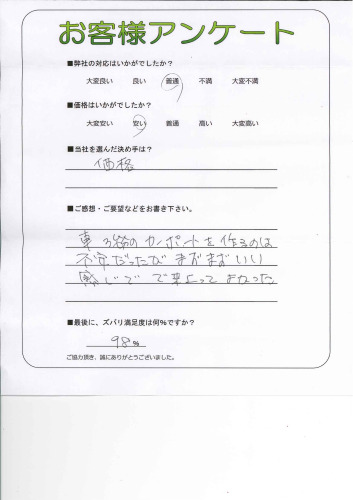 お客様アンケート
■弊社の対応はいかがでしたか?
大変良い 良い 普通 不満 大変不満
■価格はいかがでしたか?
大変安い 安い 普通 高い 大変高い
■当社を選んだ決め手は?
価格
■ご感想・ご要望などをお書き下さい。
車3台のカーポートを作るのは
不安だったがまずまずいい
感じで出来上ってよかった
■最後に、ズバリ満足度は何%ですか?
98%
ご協力頂き、誠にありがとうございました。